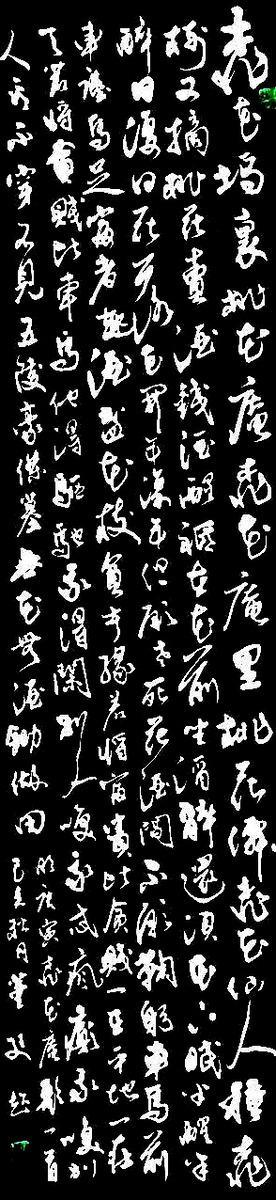 桃花塢裏桃花庵桃花庵里桃花僊桃花仙人種桃
樹又摘桃花賣酒錢酒醒祗在花前坐酒醉還須花下眠半醒半
醉日復日花落花開年復年但願老死花酒間不願鞠躬車馬前
車塵馬足富者趣酒盞花枝貧者緣若將富貴比貧賤一在平地一在
天若將貧賤比車馬他得驅馳我得閑別人笑我忒瘋癲我笑別
人看不穿不見五陵豪傑墓無花無酒鋤做田
明唐寅桃花庵歌一首
己亥秋月